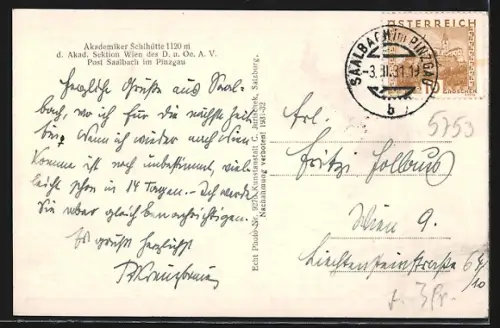 Akademiker Schihütte 1120 m
d. Akad. Sektion Wien des D. u. Oe. A. V.
Post Saalbach im Pinzgau
Herzliche Grüße aus Saal-
bach, wo ich für die nächste Zeit
bin. Wann ich wieder nach Wien
komme ist noch unbestimmt, viel-
leicht schon in 14 Tagen. – Ich werde
Sie aber gleich benachrichtigen.
Es grüßt herzlichst
Echt Photo-Nr. 9270 Kunstanstalt C. Jurischek, Salzburg.
Nachahmung verboten! 1931-32
ÖSTERREICH
SAALBACH IM PINZGAU
b
5753
Frl.
Fritzi
Wien 9.
Liechtensteinstraße 64/
10